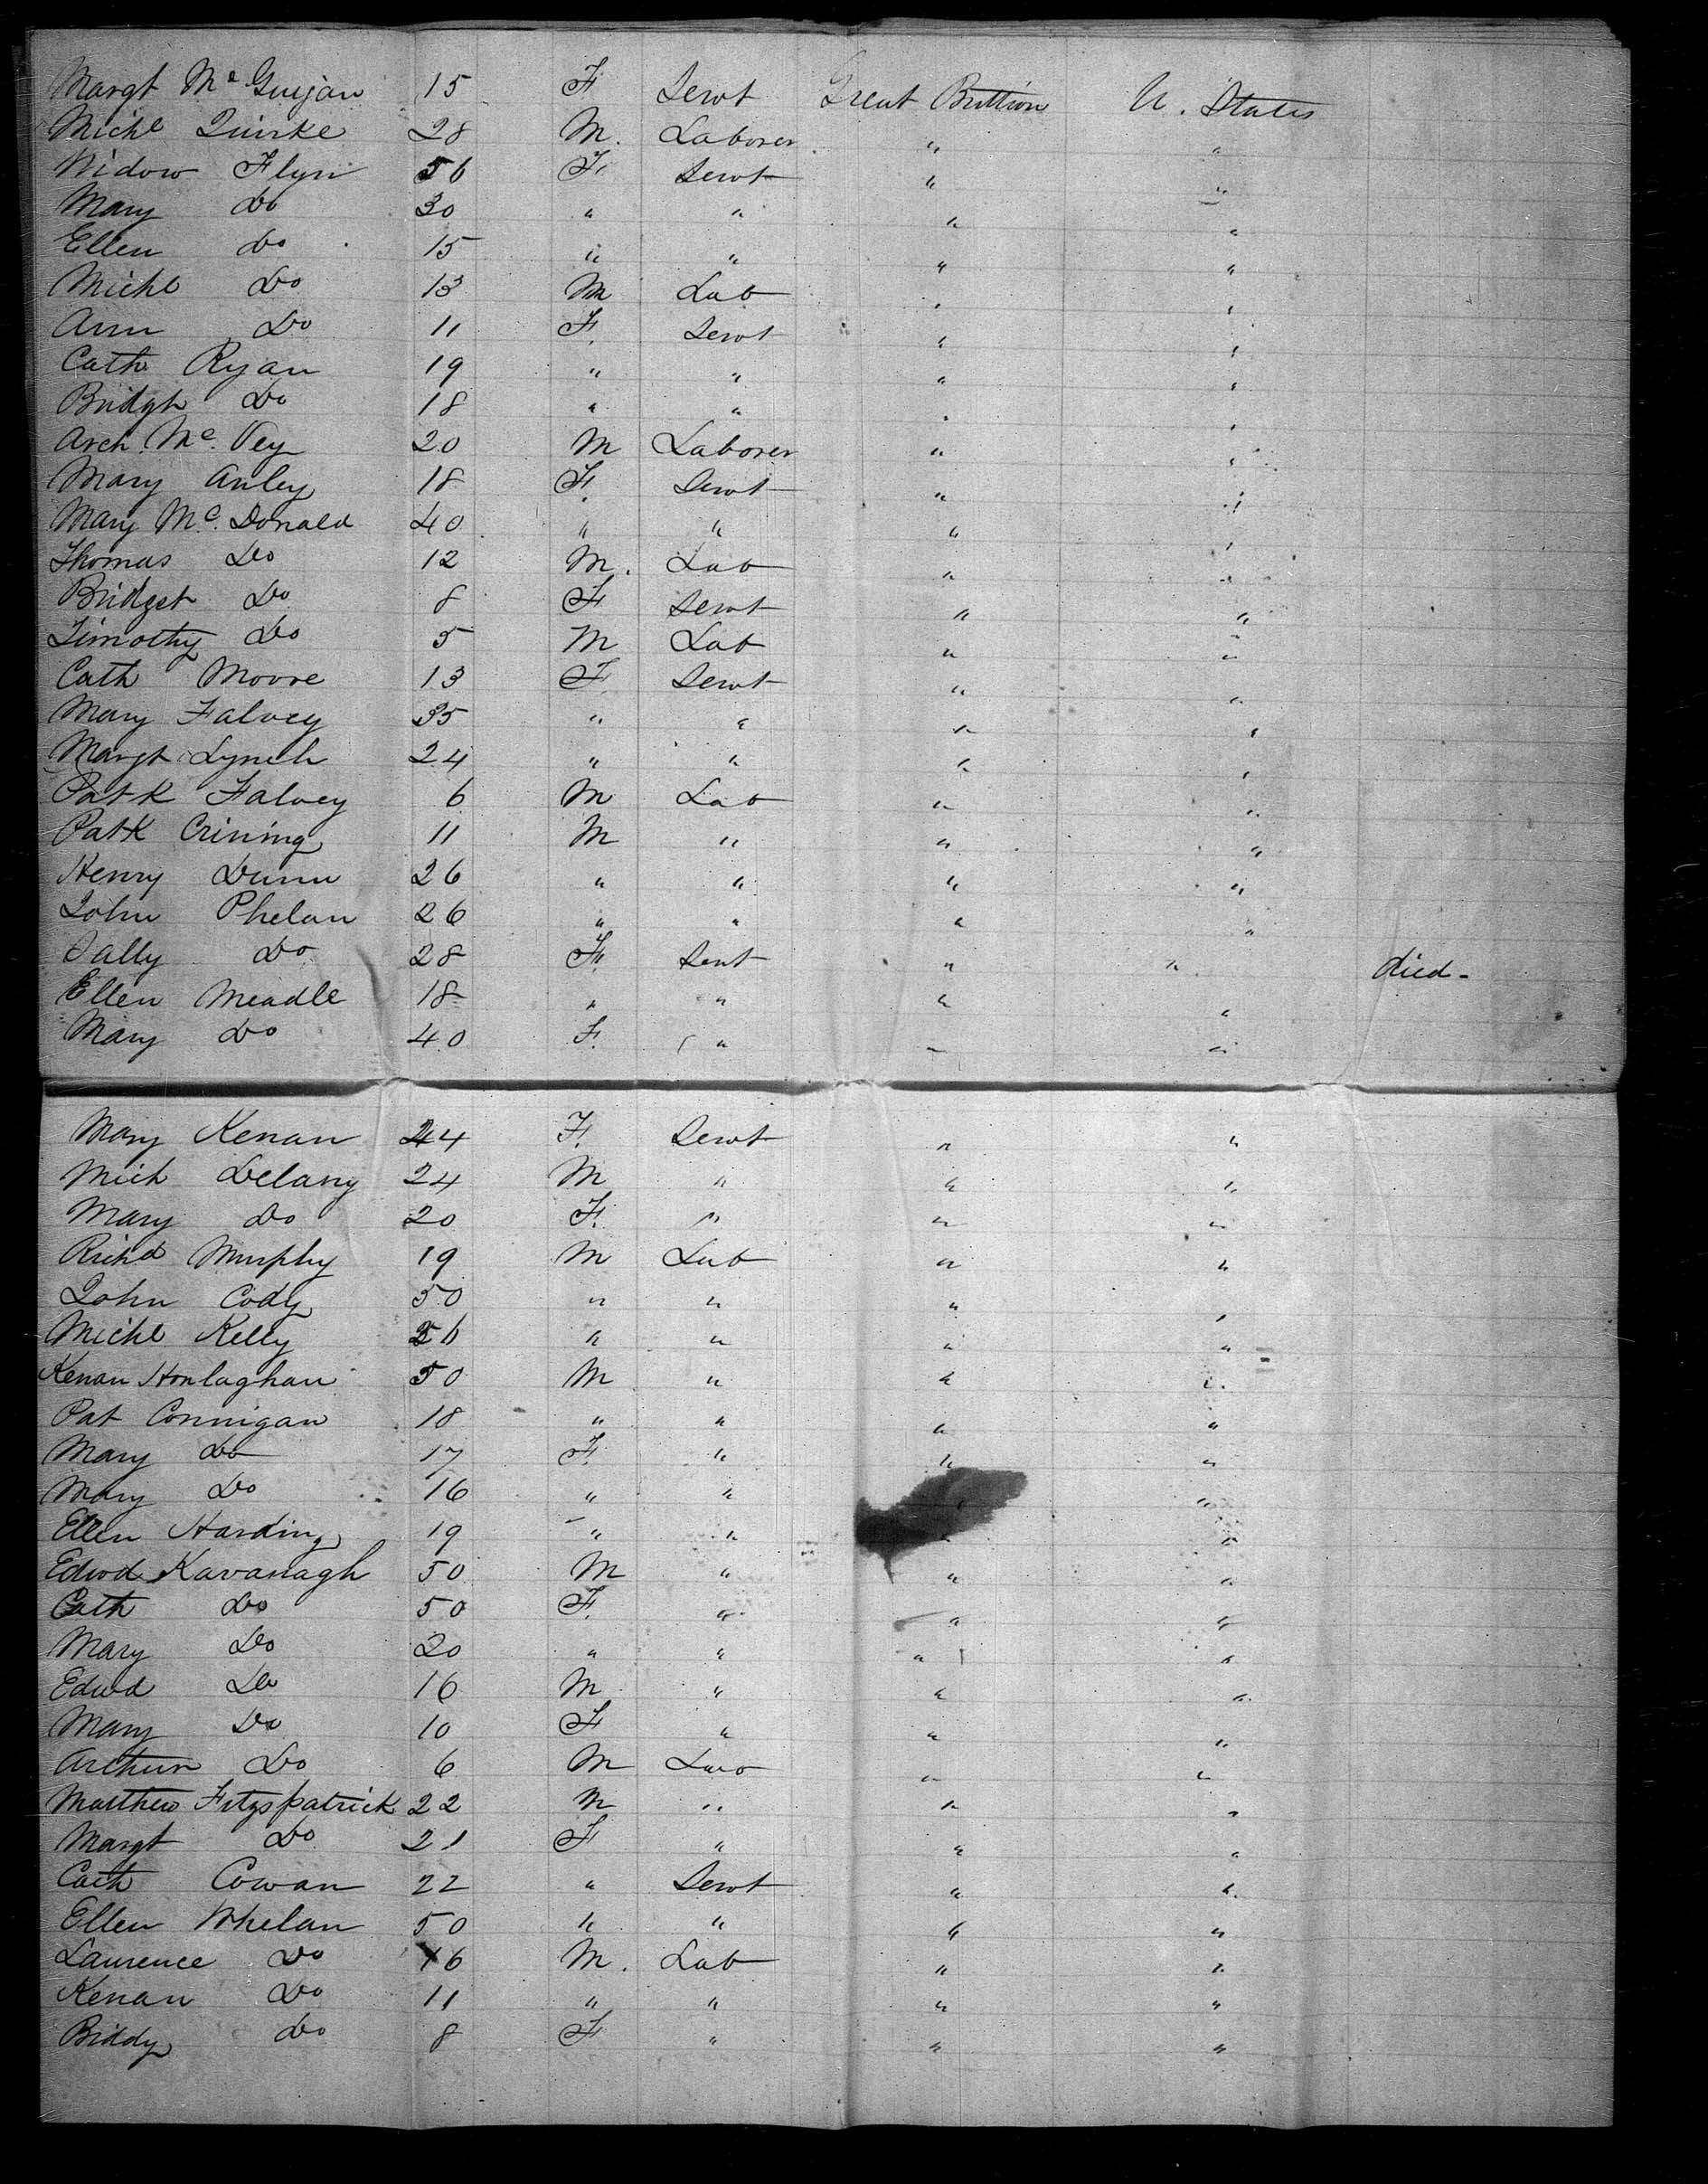 Margt Mc Guijan 15 F Servt Great Brittion U. States
Michl Quirke 28 M. Laborer " "
Widow Flyn 56 F. Servt " "
Mary Do 30 " " " "
Ellen Do 15 " " " "
Michl Do 13 M Lab " "
Ann Do 11 F. Servt " "
Cath Ryan 19 " " " "
Bridgt Do 18 " " " "
Arch. Mc. Vey 20 M Laborer " "
Mary Anley 18 F. Servt " "
Mary Mc. Donald 40 " " " "
Thomas Do 12 M. Lab " "
Bridget Do 8 F Servt " "
Timothy Do 5 M Lab " "
Cath Moore 13 F. Servt " "
Mary Falvey 35 " " " "
Margt Lynch 24 " " " "
Patk Falvey 6 M Lab " "
Patk Crining 11 M " " "
Henry Dunn 26 " " " "
John Phelan 26 " " " "
Sally Do 28 F. Servt " " died-
Ellen Meadle 18 " " " "
Mary Do 40 F. " " "
Mary Kenan 24 F. Servt " "
Mich Delany 24 M " " "
Mary Do 20 F. " " "
Richd Murphy 19 M Lab " "
John Cody 50 " " " "
Michl Kelly 26 " " " "
Kenan Honlaghan 50 M " " "
Pat Connigan 18 " " " "
Mary Do 17 F. " " "
Mary Do 16 " " " "
Ellen Harding 19 " " " "
Edwd Kavanagh 50 M " " "
Cath Do 50 F. " " "
Mary Do 20 " " " "
Edwd Do 16 M " " "
Mary Do 10 F " " "
Arthur Do 6 M Lab " "
Matthew Fitzspatrick 22 M " " "
Margt Do 21 F " " "
Cath Cowan 22 " Servt " "
Ellen Whelan 50 " " " "
Laurence Do 16 M. Lab " "
Kenan Do 11 " " " "
Biddy Do 8 F " " "